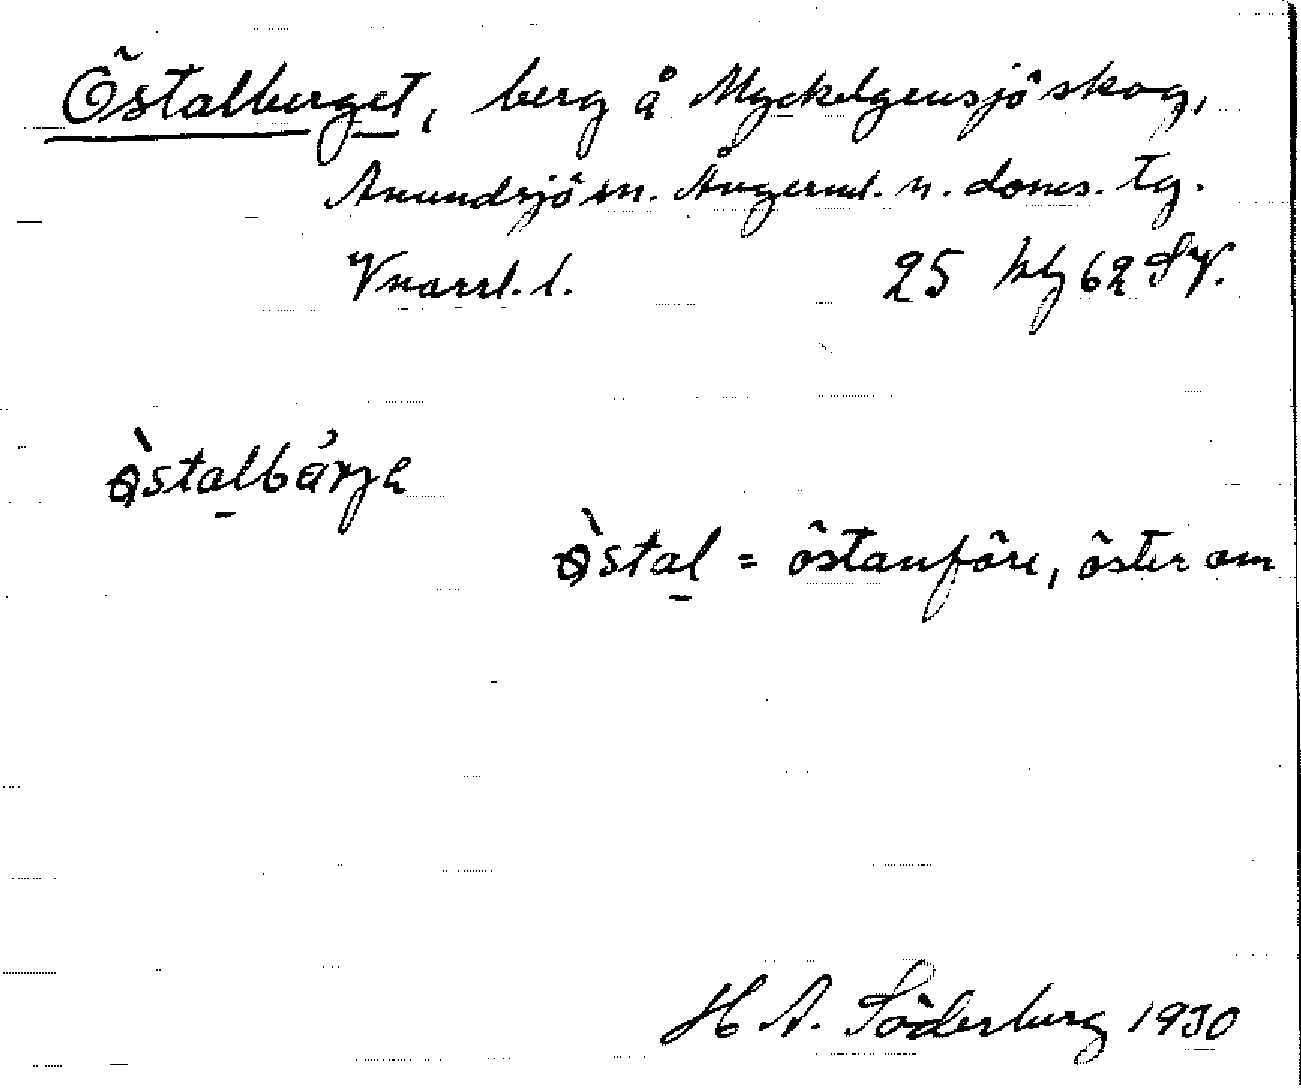 Östalberget, berg å Myckelgensjö skog,
Anundsjö sn. Ångerml. n. doms. tg.
Vnorrl. l. 25 kbl 62 SV.
östalbärje
östal = östanföre, öster om
H A. Söderberg 1930